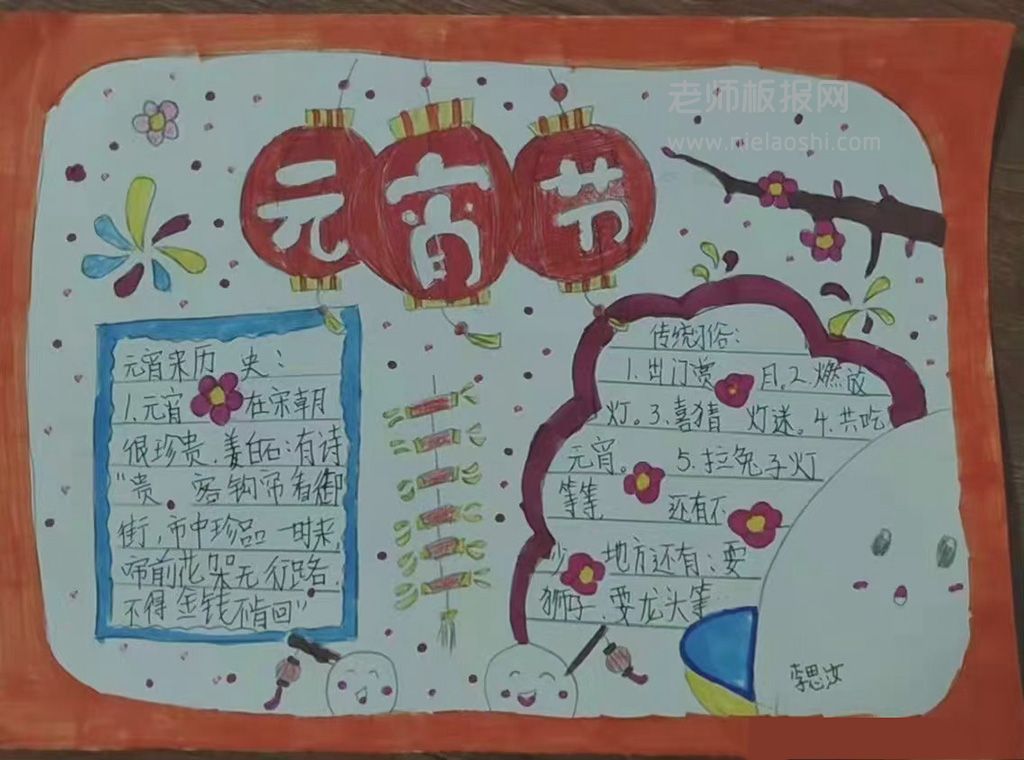 老师板报网
www.nielaoshi.com
元宵节
元宵来历 史：
1.元宵 在宋朝
很珍贵.姜白石:有诗
"贵. 客钩帘看御
街,市中珍品一时来,
帘前花架无行路.
不得金钱不肯回"
传统习俗：
1.出门赏 月。2.燃放
灯。3.喜猜 灯迷。4.共吃
元宵。 5.拉兔子灯
等等 还有不
少 地方还有:耍
狮子、耍龙头等…
李思汝